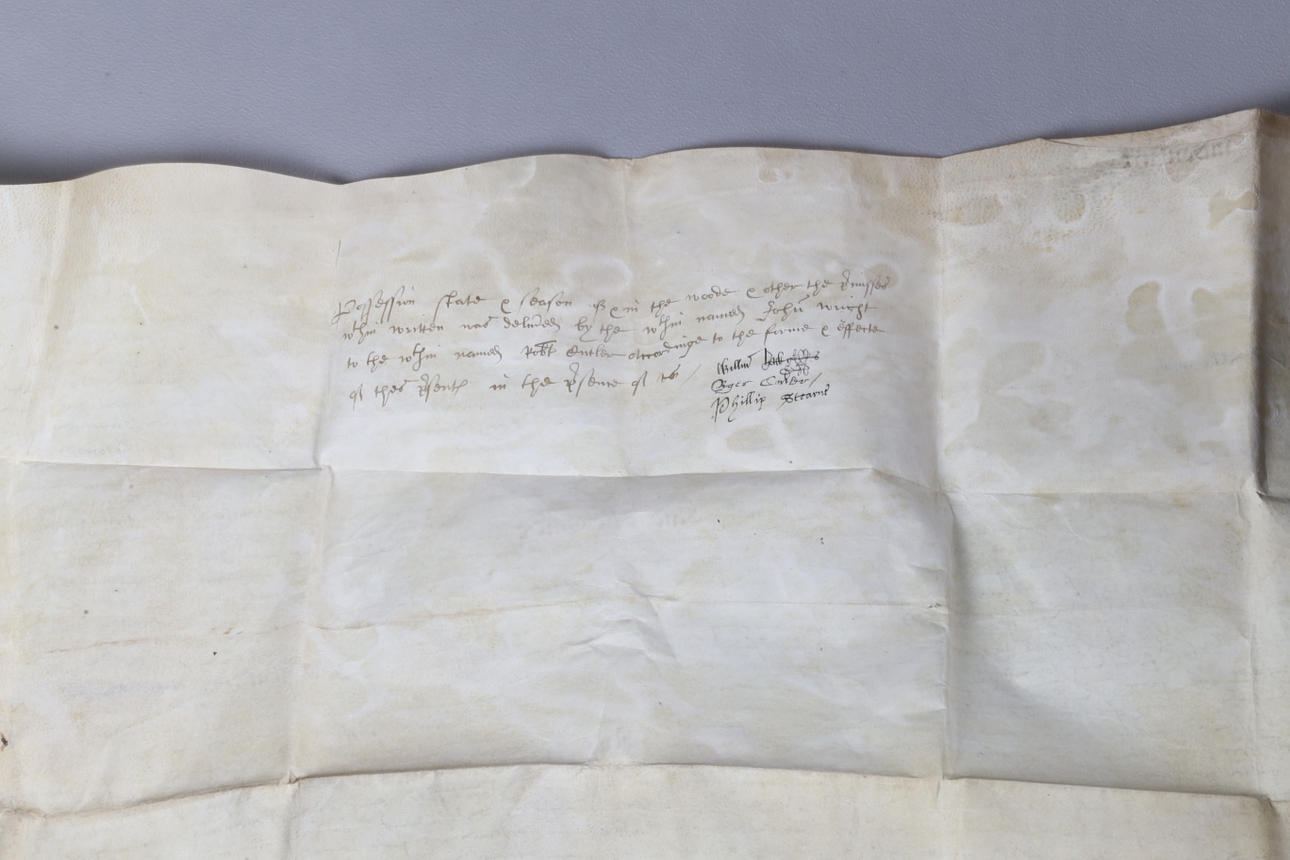 Possession state & season of & in the woode & other the p̄misses
wthin written was deliũed by the wthin named John wright
to the wthin named Robt Cutler accordinge to the forme & effecte
of thes p̄sents in the p̄sence of
Willm̄
Roger Cutler
Phillip Stearne